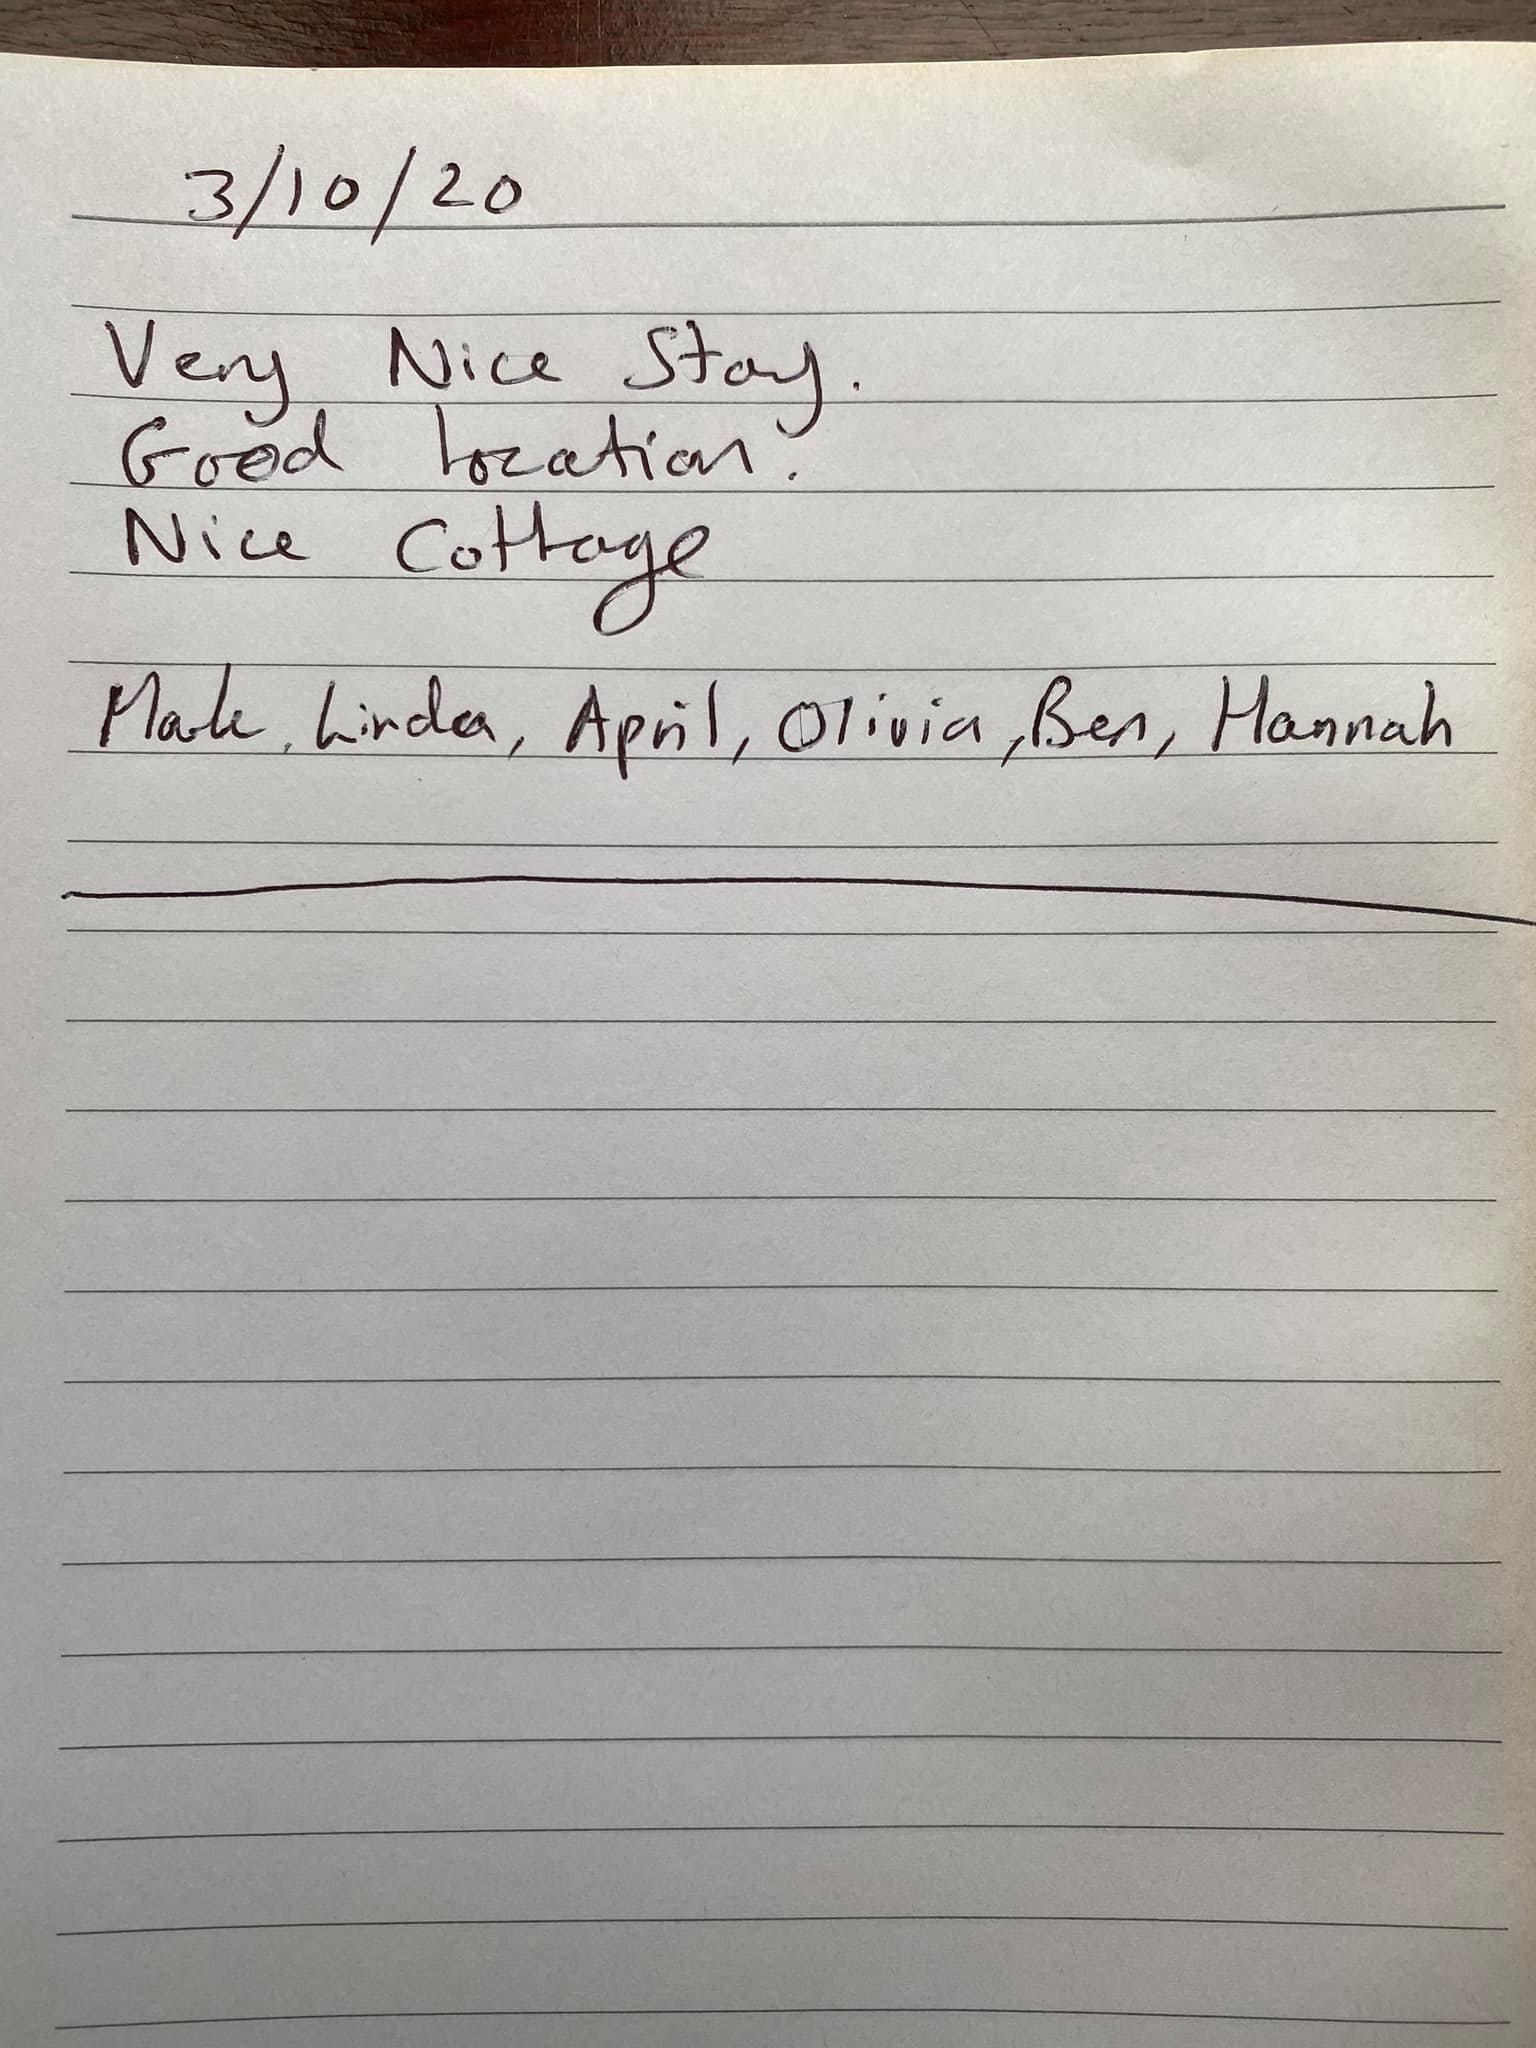 3/10/20
Very Nice Stay.
Good Location.
Nice Cottage
Mark, Linda, April, Olivia, Ben, Hannah